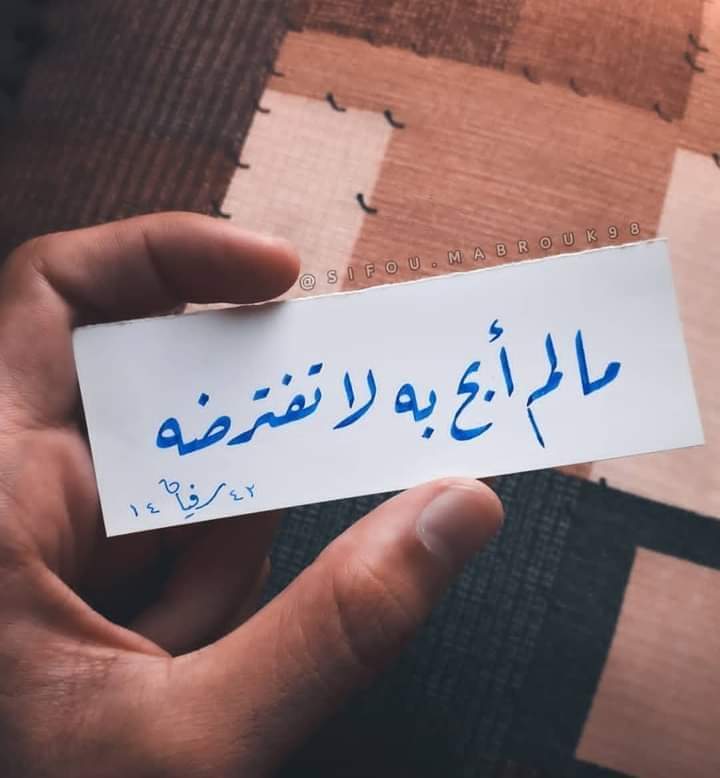 @SIFOU.MABROUK98
مالم أبح به لا تفترضه
١٤ ٤٢